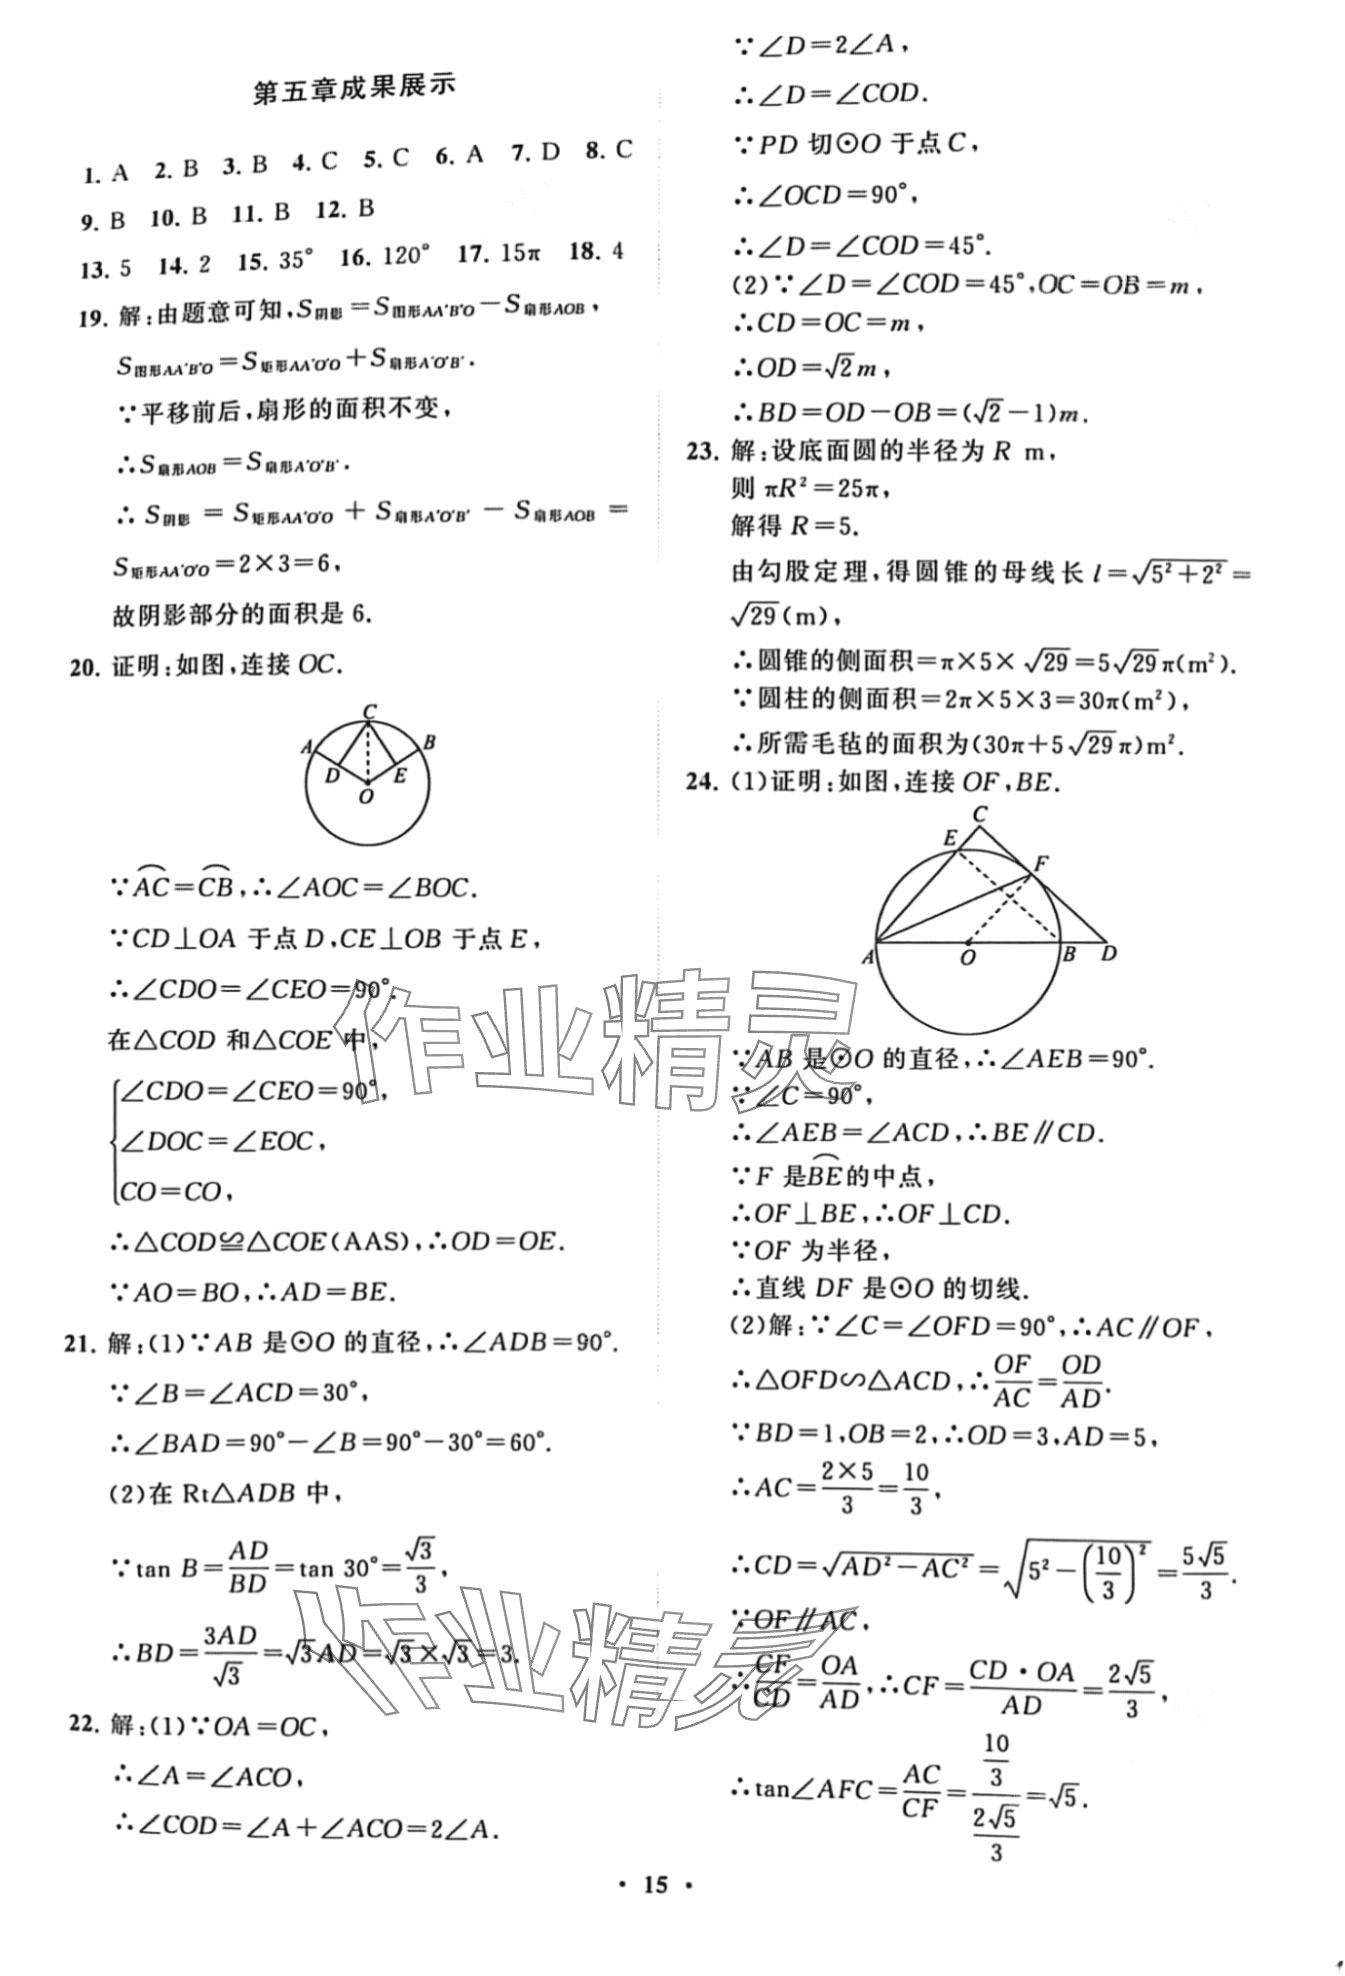 第五章成果展示
1. A 2. B 3. B 4. C 5. C 6. A 7. D 8. C
9. B 10. B 11. B 12. B
13. 5 14. 2 15. 35° 16. 120° 17. 15π 18. 4
19. 解:由题意可知,S阴影=S图形AA'B'O-S扇形AOB,
S图形AA'B'O=S矩形AA'O'O+S扇形A'O'B'.
∵平移前后,扇形的面积不变,
∴S扇形AOB=S扇形A'O'B'.
∴S阴影=S矩形AA'O'O+S扇形A'O'B'-S扇形AOB=
S矩形AA'O'O=2×3=6,
故阴影部分的面积是 6.
20. 证明:如图,连接 OC.
C
A
B
D
E
O
∵⌒AC=⌒CB,∴∠AOC=∠BOC.
∵CD⊥OA 于点 D,CE⊥OB 于点 E,
∴∠CDO=∠CEO=90°.
在△COD 和△COE 中,
{∠CDO=∠CEO=90°,
∠DOC=∠EOC,
CO=CO,
∴△COD≌△COE(AAS),∴OD=OE.
∵AO=BO,∴AD=BE.
21. 解:(1)∵AB 是⊙O 的直径,∴∠ADB=90°.
∵∠B=∠ACD=30°,
∴∠BAD=90°-∠B=90°-30°=60°.
(2)在 Rt△ADB 中,
∵tan B=AD/BD=tan 30°=√3/3,
∴BD=3AD/√3=√3AD=√3×√3=3.
22. 解:(1)∵OA=OC,
∴∠A=∠ACO,
∴∠COD=∠A+∠ACO=2∠A.
∵∠D=2∠A,
∴∠D=∠COD.
∵PD 切⊙O 于点 C,
∴∠OCD=90°,
∴∠D=∠COD=45°.
(2)∵∠D=∠COD=45°,OC=OB=m,
∴CD=OC=m,
∴OD=√2m,
∴BD=OD-OB=(√2-1)m.
23. 解:设底面圆的半径为 R m,
则 πR²=25π,
解得 R=5.
由勾股定理,得圆锥的母线长 l=√(5²+2²)=
√29(m),
∴圆锥的侧面积=π×5×√29=5√29π(m²).
∵圆柱的侧面积=2π×5×3=30π(m²),
∴所需毛毡的面积为(30π+5√29π)m².
24. (1)证明:如图,连接 OF,BE.
C
E
F
A
O
B
D
∵AB 是⊙O 的直径,∴∠AEB=90°.
∵∠C=90°,
∴∠AEB=∠ACD,∴BE∥CD.
∵F 是⌒BE的中点,
∴OF⊥BE,∴OF⊥CD.
∵OF 为半径,
∴直线 DF 是⊙O 的切线.
(2)解:∵∠C=∠OFD=90°,∴AC∥OF,
∴△OFD∽△ACD,∴OF/AC=OD/AD.
∵BD=1,OB=2,∴OD=3,AD=5,
∴AC=2×5/3=10/3,
∴CD=√(AD²-AC²)=√(5²-(10/3)²)=5√5/3.
∵OF∥AC,
∴CF/CD=OA/AD,∴CF=CD·OA/AD=2√5/3,
∴tan∠AFC=AC/CF=(10/3)/(2√5/3)=√5.
作业精灵
作业精灵
· 15 ·